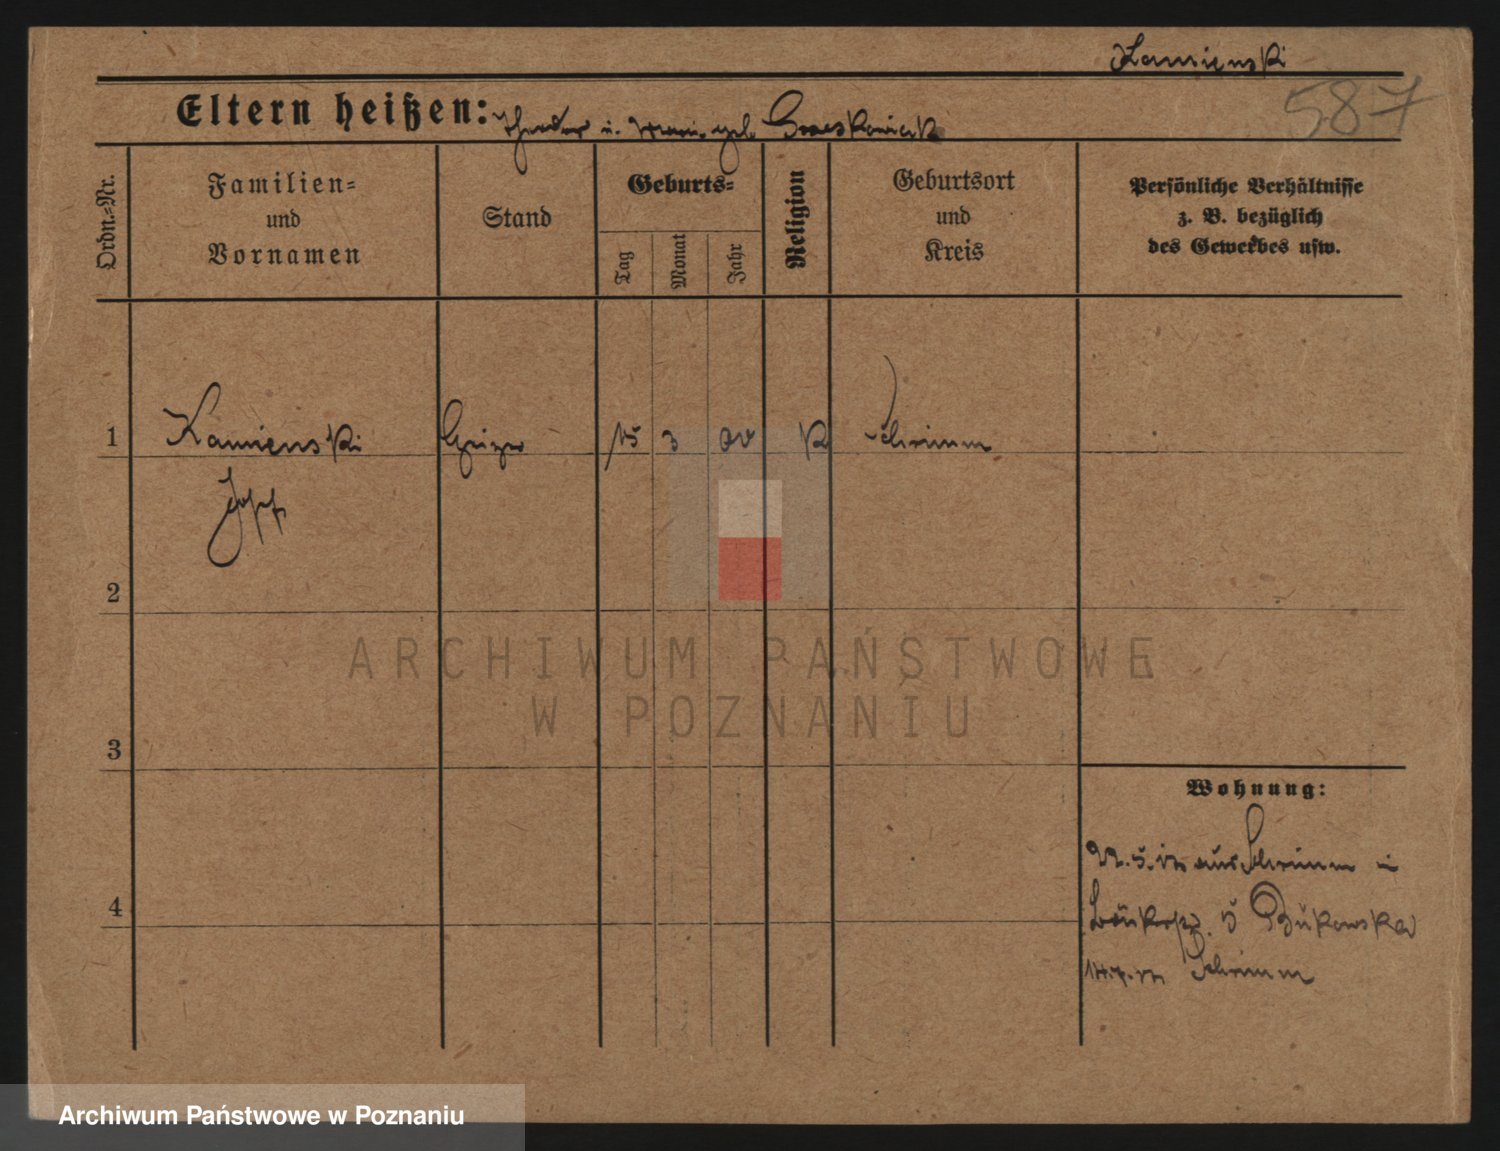 Kamienski
587
Eltern heißen: Theodor u. Maria geb.
Ordn.=Nr.
Familien=
und
Vornamen
Stand
Geburts=
Tag
Monat
Jahr
Religion
Geburtsort
und
Kreis
Persönliche Verhältnisse
z. B. bezüglich
des Gewerbes usw.
1 Kamienski 15 3 00 K Schrimm
Josef
2
3
4
Wohnung:
22.5. aus Schrimm
Bukowska
Schrimm
ARCHIWUM PAŃSTWOWE
W POZNANIU
Archiwum Państwowe w Poznaniu